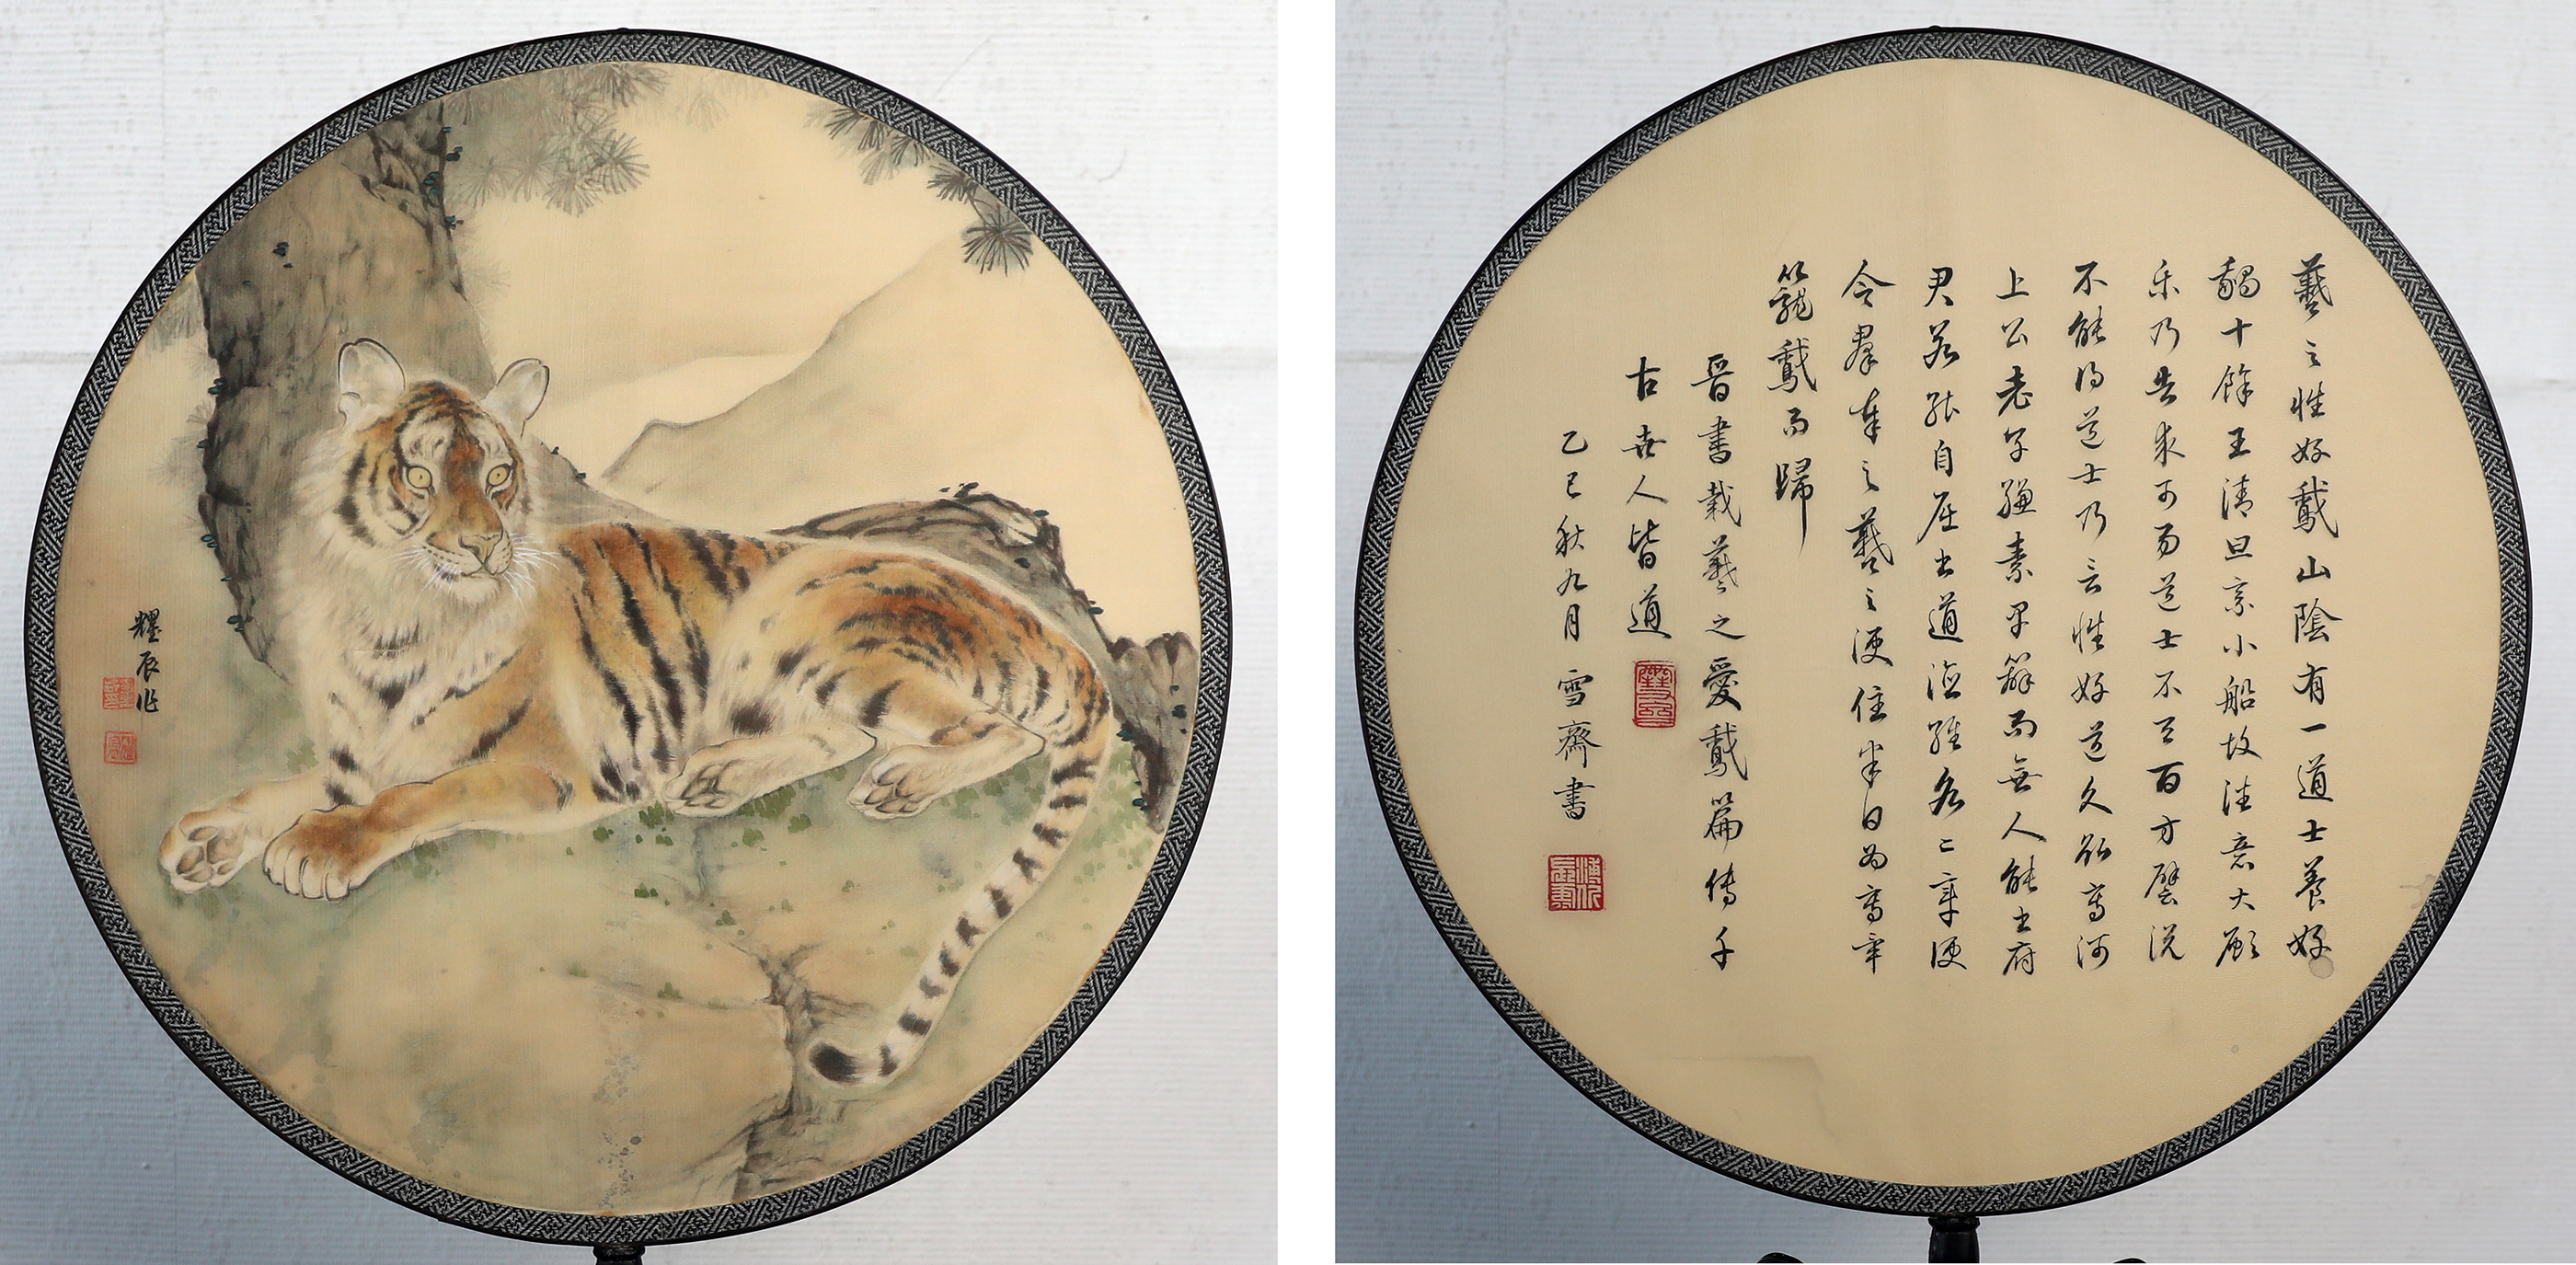 耀辰作
羲之性好鵞山陰有一道士養好
鵝十餘王清旦乘小船故往意大願
乐乃告求市易道士不与百方譬説
不能得道士乃言性好道久欲寫河
上公老子縑素早辦而無人能書府
君若能自屈書道德經各二章便
合羣奉之羲之便住半日為寫畢
籠鵞而歸
晋書載羲之愛鵞篇傳千
古世人皆道
乙巳秋九月雪齋書